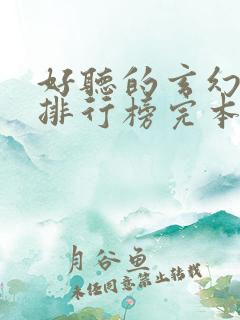 好聽的玄幻
排行榜完本
月谷鱼
未经同意禁止转载